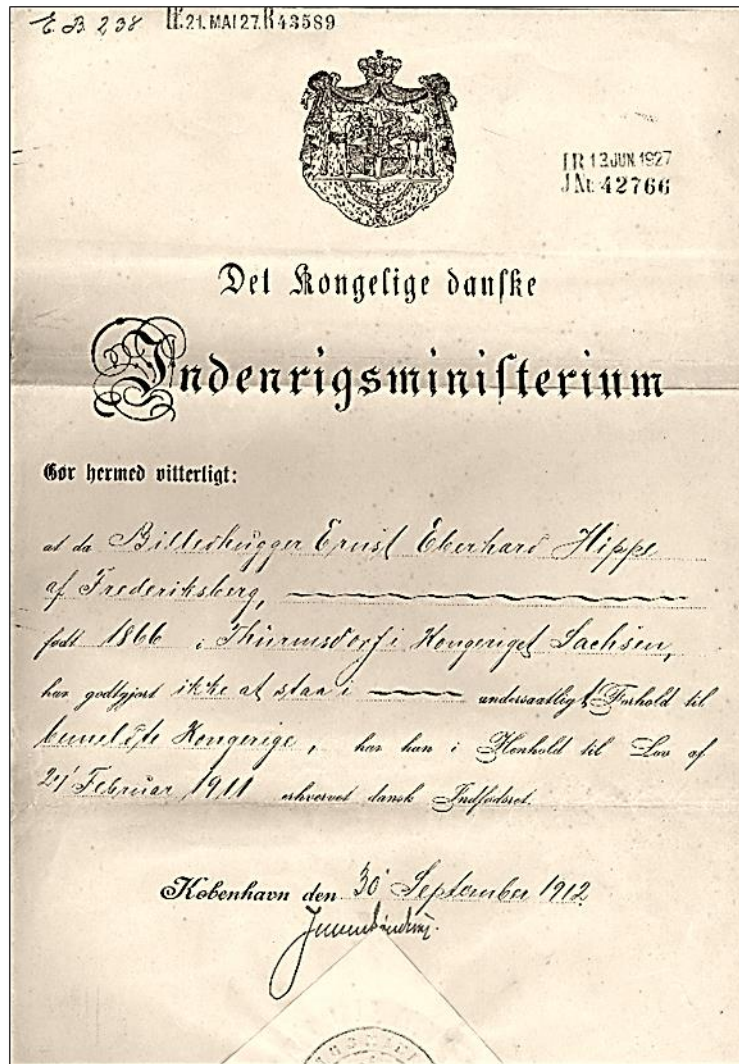 E.B. 238 21. MAI 27. 43589
I R 13 JUN. 1927
J Nr. 42766
Det Kongelige danske
Indenrigsministerium
Gør hermed vitterligt:
at da Billedhugger Ernst Eberhard Hippe
af Frederiksberg,
født 1866 i Thürmsdorf i Kongeriget Sachsen,
har godtgjort ikke at staa i undersaatligt Forhold til
Kongerige, har han i Henhold til Lov af
Februar 1911 erhvervet dansk Indfødsret.
København den 30 September 1912